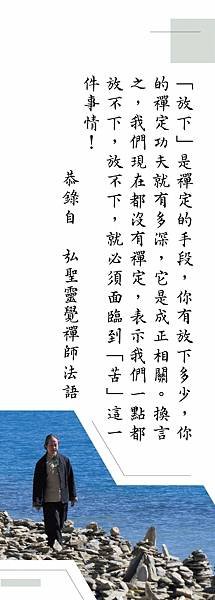 「放下」是禪定的手段，你有放下多少，你
的禪定功夫就有多深，它是成正相關。換言
之，我們現在都沒有禪定，表示我們一點都
放不下，放不下，就必須面臨到「苦」這一
件事情！
恭錄自　弘聖靈覺禪師法語